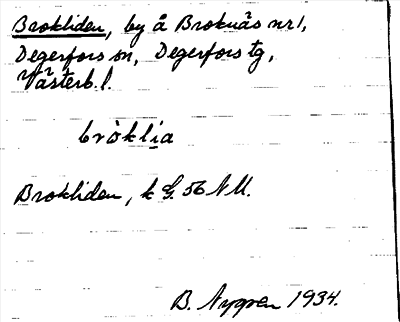 Brokliden, by å Broknäs nr 1,
Degerfors sn, Degerfors tg,
Västerb. l.
bròklia
Brokliden, k G. 56 NU.
B. Nygren 1934.